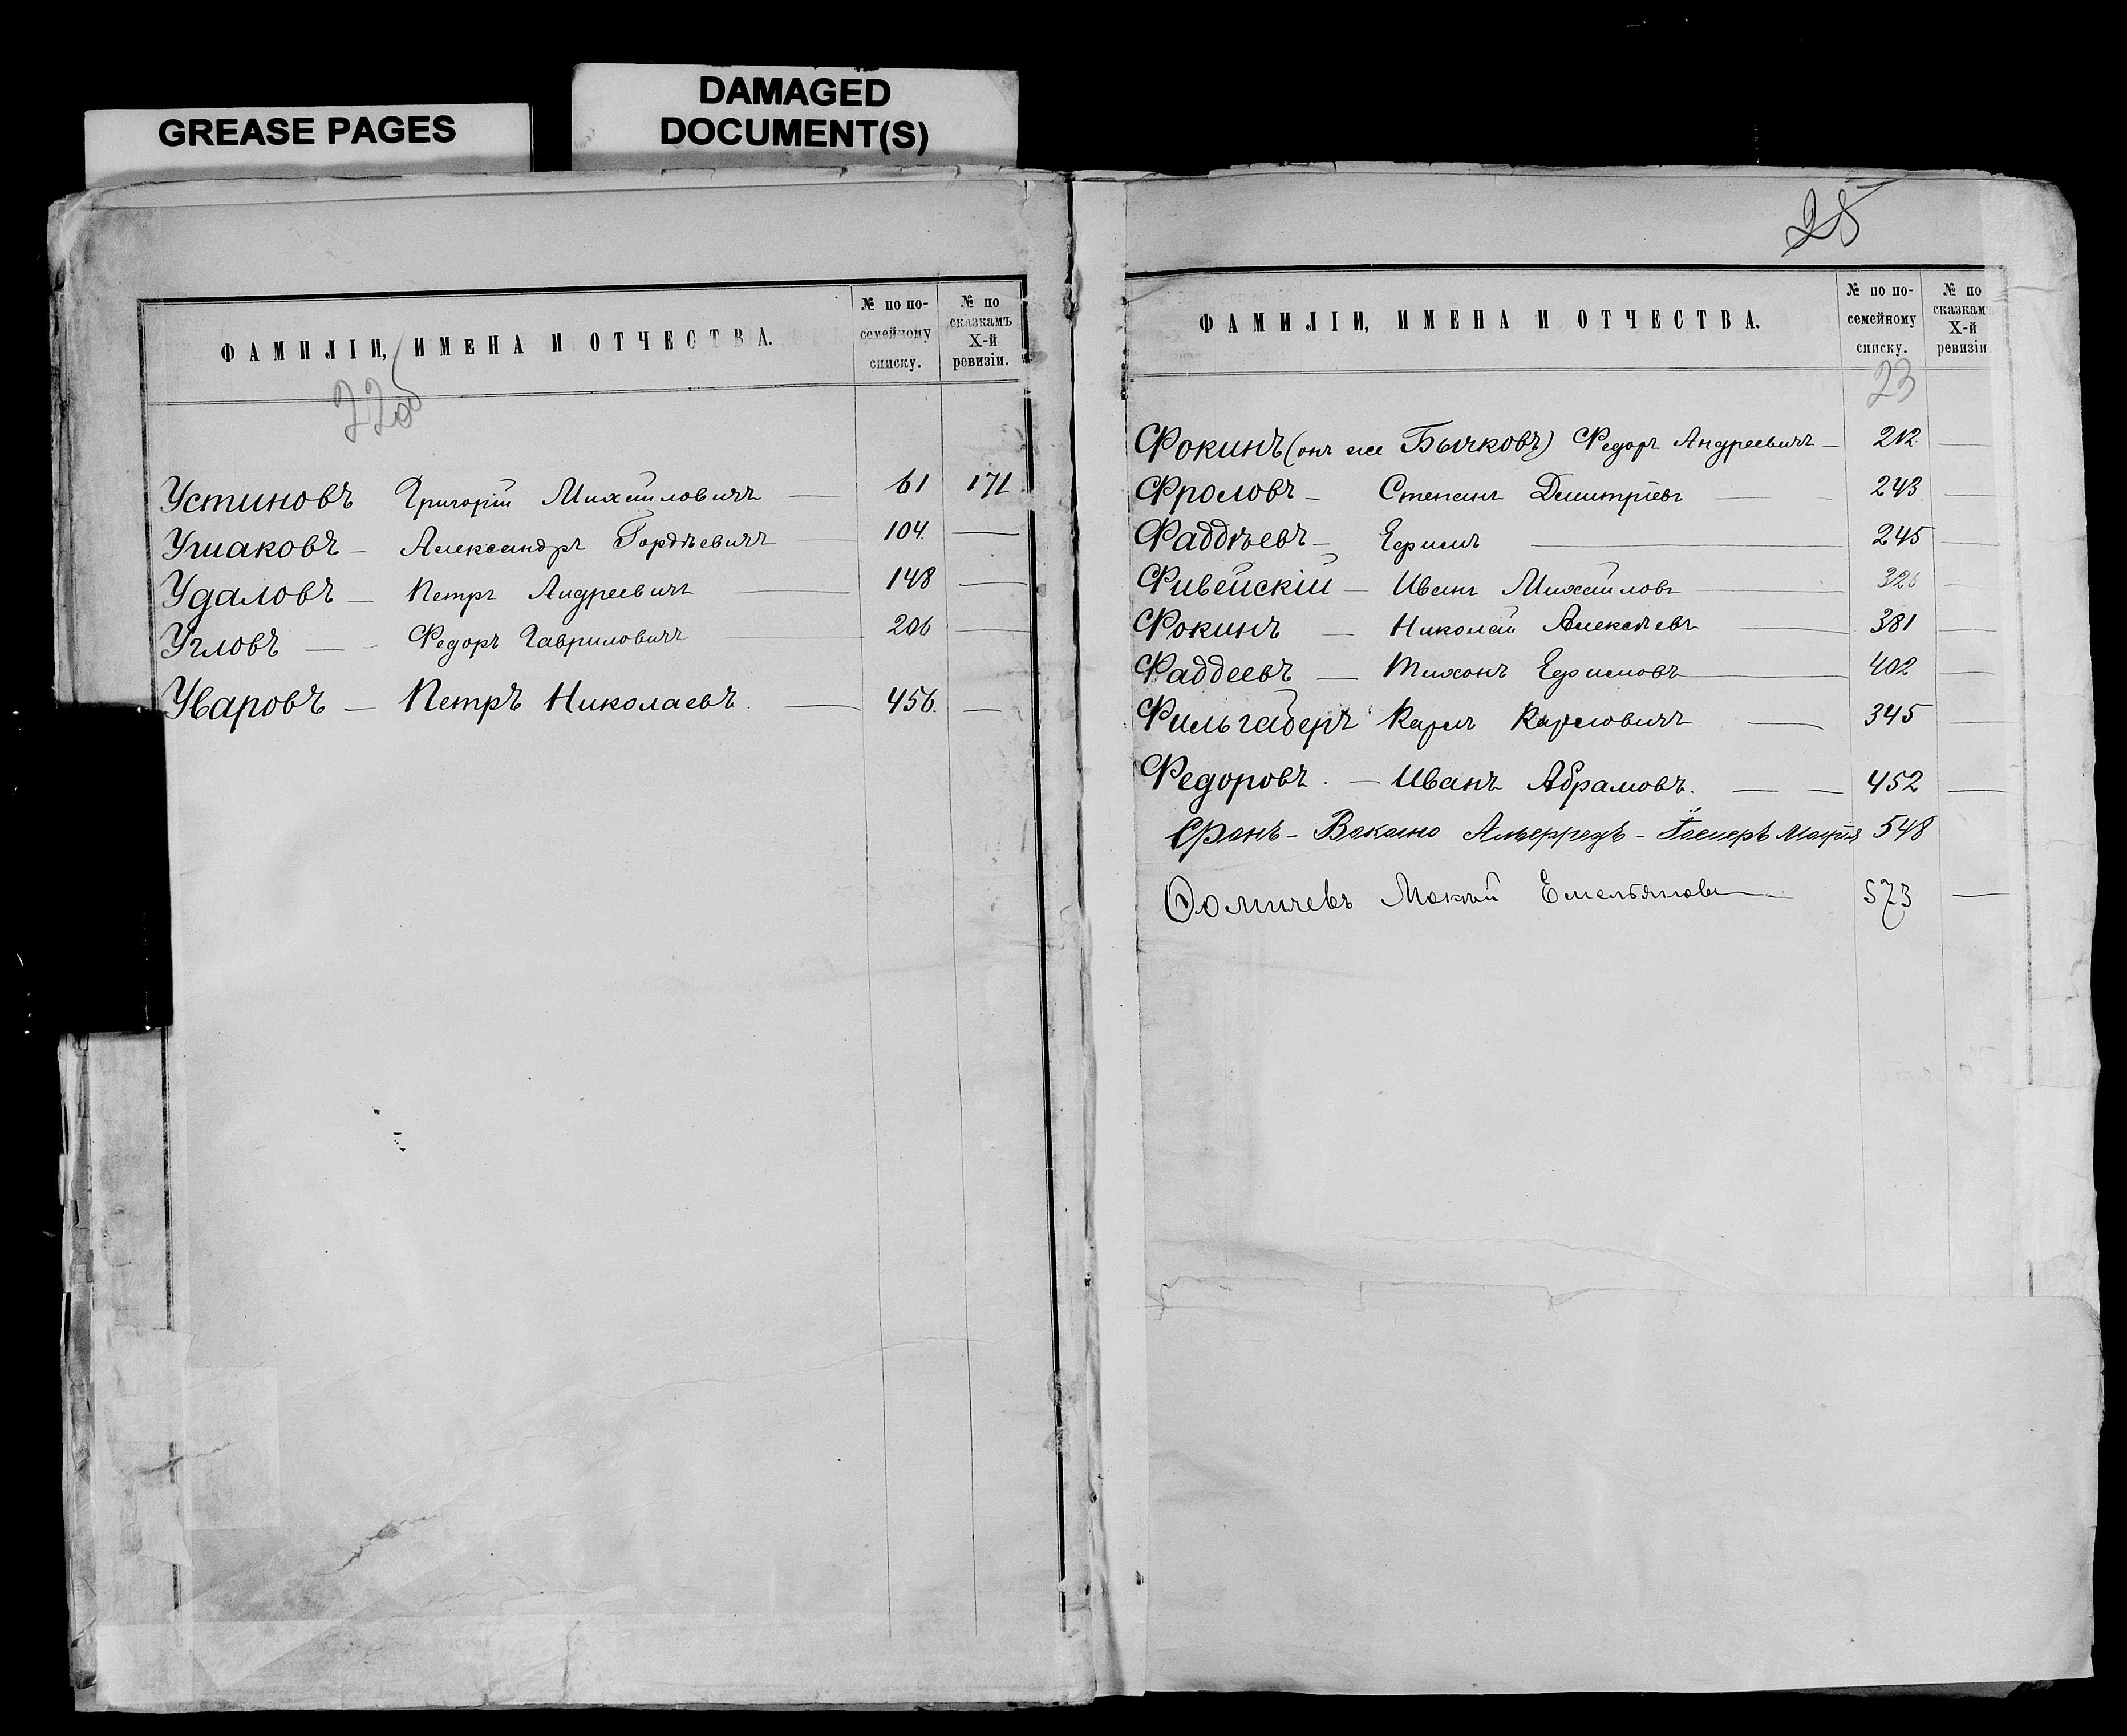 GREASE PAGES
DAMAGED
DOCUMENT(S)
ФАМИЛІИ, ИМЕНА И ОТЧЕСТВА.
№ по по-
семейному
списку.
№ по
сказкамъ
X-й
ревизіи.
22об
Устиновъ Григорій Михайловичъ — 61 171
Ушаковъ — Александръ Гордѣевичъ — 104. —
Удаловъ — Петръ Андреевичъ — 148 —
Угловъ — - Федоръ Гавриловичъ 206 —
Уваровъ — Петръ Николаевъ. — 456. —
25
ФАМИЛІИ, ИМЕНА И ОТЧЕСТВА.
№ по по-
семейному
списку.
№ по
сказкам
X-й
ревизіи
23
Фокинъ (онъ же Бычковъ) Федоръ Андреевичъ — 212 —
Фроловъ — Степанъ Дмитріевъ — 243 —
Фаддѣевъ — Ефимъ — 245 —
Фивейскій — Иванъ Михайловъ — 326 —
Фокинъ — Николай Алексѣевъ — 381 —
Фаддеевъ — Тихонъ Ефимовъ — 402 —
Фильгаберъ Карлъ Карловичъ — 345 —
Федоровъ. — Иванъ Абрамовъ. — — 452 —
Франъ - Альфредъ - Марія 548
Ѳомичевъ Мокій Емельяновъ — 573 —